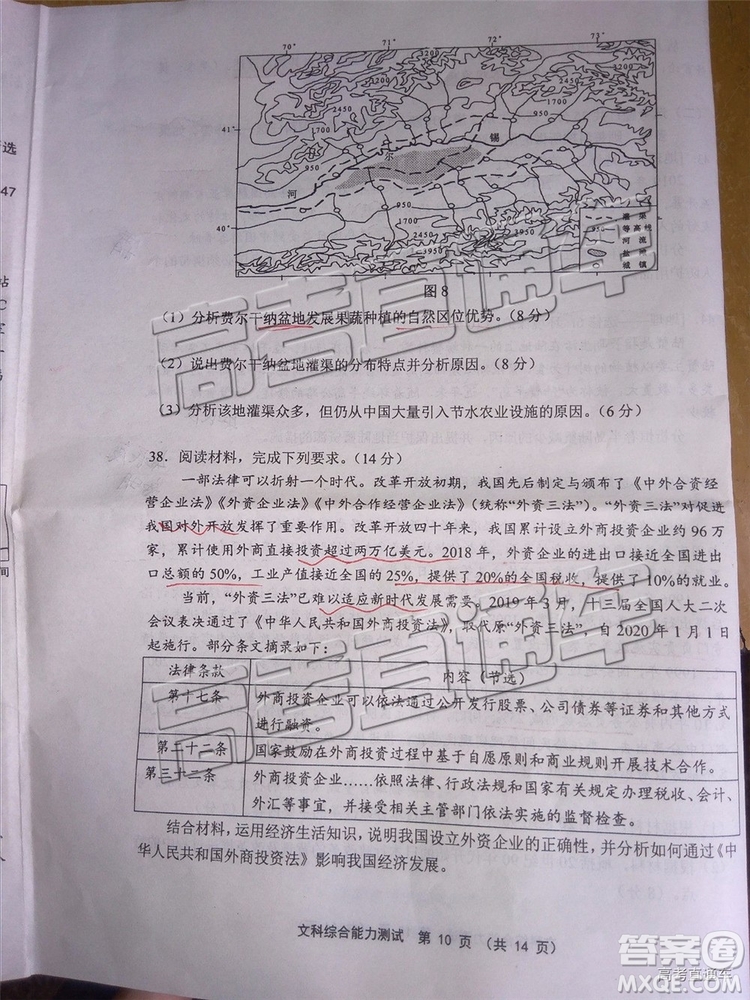 70° 71° 72° 73°
41° 40°
2450 1700 2450 3200 2450 1700 950
锡 尔 河
950 1700 2450 3950 950
灌渠
等高线
河流
盐沼
城镇
图8
(1)分析费尔干纳盆地发展果蔬种植的自然区位优势。(8分)
(2)说出费尔干纳盆地灌渠的分布特点并分析原因。(8分)
(3)分析该地灌渠众多,但仍从中国大量引入节水农业设施的原因。(6分)
38. 阅读材料,完成下列要求。(14分)
一部法律可以折射一个时代。改革开放初期,我国先后制定与颁布了《中外合资经
营企业法》《外资企业法》《中外合作经营企业法》(统称“外资三法”)。“外资三法”对促进
我国对外开放发挥了重要作用。改革开放四十年来,我国累计设立外商投资企业约96万
家,累计使用外商直接投资超过两万亿美元。2018年,外资企业的进出口接近全国进出
口总额的50%,工业产值接近全国的25%,提供了20%的全国税收,提供了10%的就业。
当前,“外资三法”已难以适应新时代发展需要。2019年3月,十三届全国人大二次
会议表决通过了《中华人民共和国外商投资法》,取代原“外资三法”,自2020年1月1日
起施行。部分条文摘录如下:
法律条款 内容(节选)
第十七条 外商投资企业可以依法通过公开发行股票、公司债券等证券和其他方式
进行融资。
第二十二条 国家鼓励在外商投资过程中基于自愿原则和商业规则开展技术合作。
第三十二条 外商投资企业……依照法律、行政法规和国家有关规定办理税收、会计、
外汇等事宜,并接受相关主管部门依法实施的监督检查。
结合材料,运用经济生活知识,说明我国设立外资企业的正确性,并分析如何通过《中
华人民共和国外商投资法》影响我国经济发展。
文科综合能力测试 第10页(共14页)
高考直通车
高考直通车
答案圈
MXQE.COM
高考直通车
选
47
站
C
军
一
间